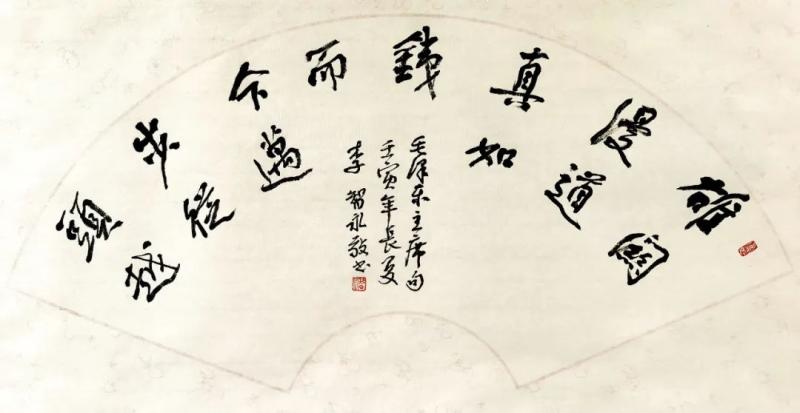 雄關
漫道
真如
鐵
而
今邁
步從
頭越
毛泽东主席句
壬寅年長夏
李智永敬书